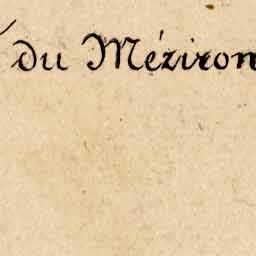 du Méziron